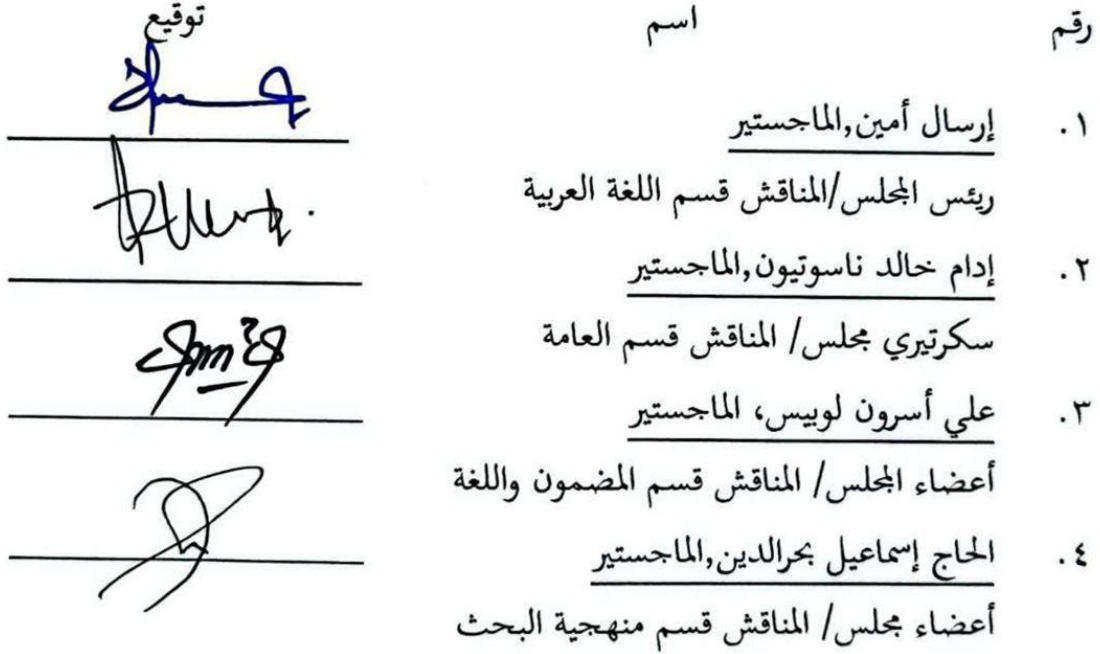 رقم اسم توقيع
١. إرسال أمين,الماجستير
ريئس المجلس/المناقش قسم اللغة العربية
٢. إدام خالد ناسوتيون,الماجستير
سكرتيري مجلس/ المناقش قسم العامة
٣. علي أسرون لوبيس، الماجستير
أعضاء المجلس/ المناقش قسم المضمون واللغة
٤. الحاج إسماعيل بحرالدين,الماجستير
أعضاء مجلس/ المناقش قسم منهجية البحث